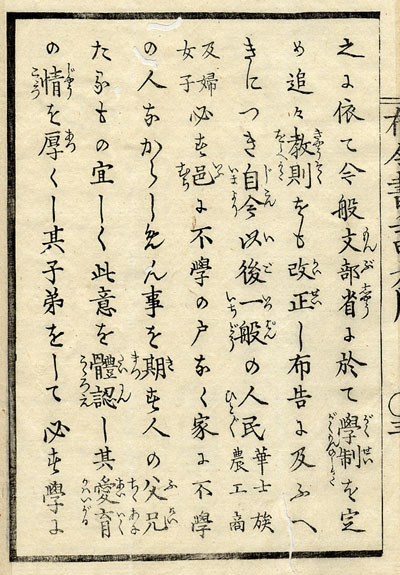 之に依て今般文部省に於て學制を定
め追々教則をも改正し布告に及ふへ
きにつき自今以後一般の人民華士族農工商
及婦女子必す邑に不學の戸なく家に不學
の人なからしめん事を期す人の父兄
たるもの宜しく此意を體認し其愛育
の情を厚くし其子弟をして必す學に